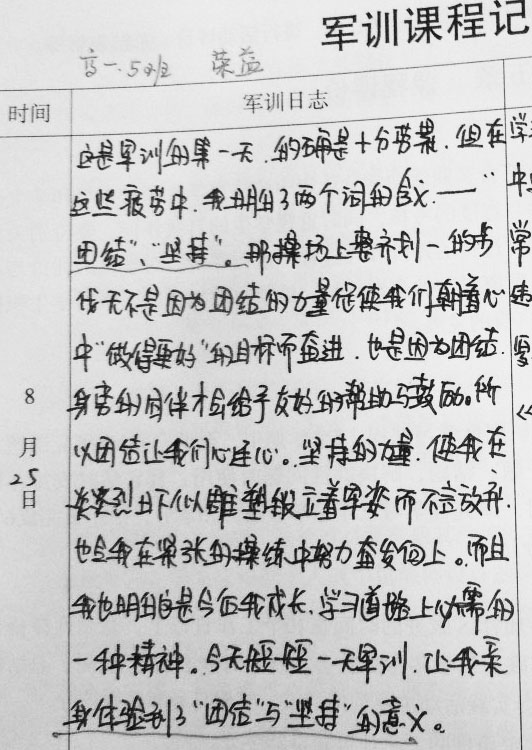 军训课程记
高一.5班 荣益
时间
军训日志
这是军训的第一天.的确是十分劳累.但在
这些疲劳中.我明白了两个词的含义.——“
团结”、“坚持”。那操场上整齐划一的步
伐无不是因为团结的力量促使我们朝着心
中“做得更好”的目标而奋进.也是因为团结.
身旁的同伴才会给予友好的帮助与鼓励。所
以团结让我们心连心。坚持的力量.使我在
炎炎烈日下似雕塑般立着军姿而不言放弃.
也会我在紧张的操练中努力奋发向上。而且
我也明白这是今后我成长、学习道路上必需的
一种精神。今天短短一天军训.让我亲
身体验到了“团结”与“坚持”的意义。
8
月
25
日
学
中
常